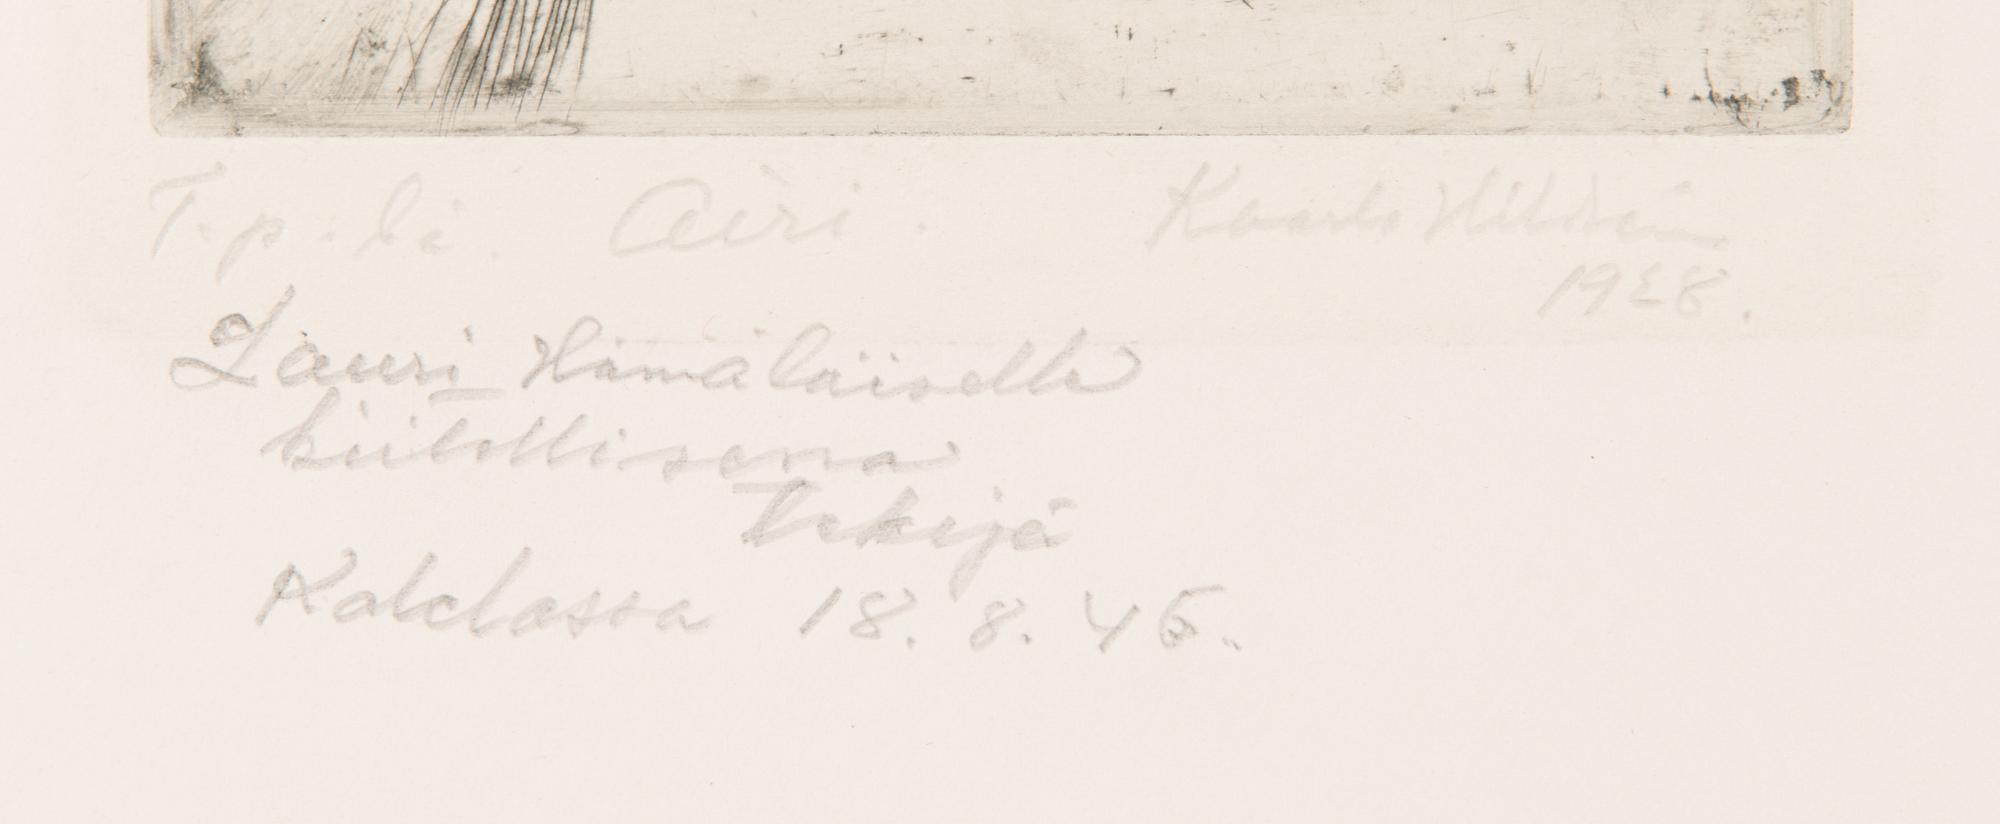 T.p. la. Airi. Kaarlo Hildén
1928.
Lauri Hämäläiselle
kiitollisena
Tekijä
Kalelassa 18. 8. 45.